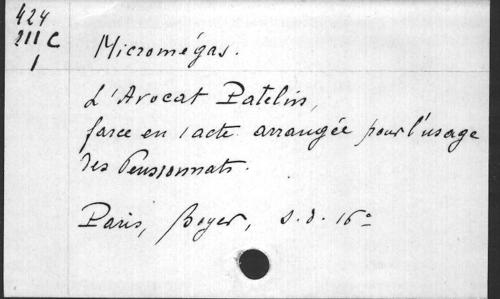 424
211 C
1
Micromégas.
L'Avocat Patelin,
farce en 1 acte arrangée pour l'usage
des Pensionnats.
Paris, Boyer, s.d. 16°